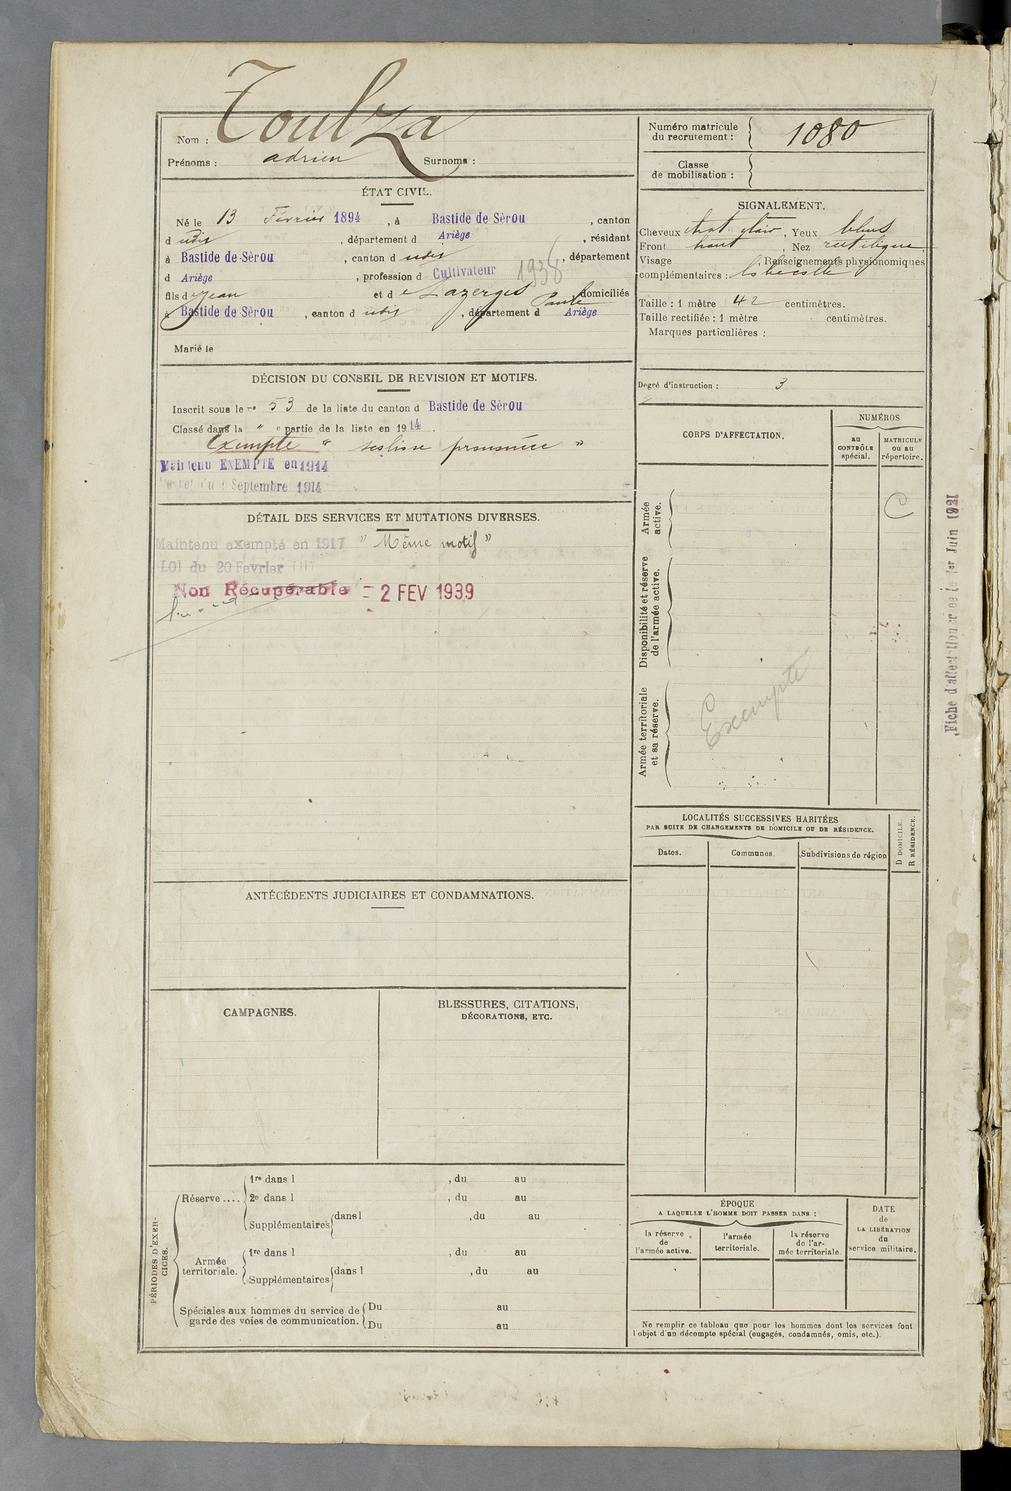 Nom : Toulza
Prénoms : adrien Surnoms :
ÉTAT CIVIL.
Né le 13 Février 1894, à Bastide de Sérou, canton
d udit, département d Ariège, résidant
à Bastide de Sérou, canton d udit, département
d Ariège, profession d Cultivateur 1938
fils de Jean et de Lazerges Paule domiciliés
à Bastide de Sérou, canton d udit, département d Ariège
Marié le
DÉCISION DU CONSEIL DE REVISION ET MOTIFS.
Inscrit sous le no 53 de la liste du canton d Bastide de Sérou
Classé dans la " e partie de la liste en 1914.
Exempté " scoliose prononcée "
Maintenu EXEMPTE en 1914
Septembre 1914
DÉTAIL DES SERVICES ET MUTATIONS DIVERSES.
Maintenu exempté en 1917 " Même motif "
LOI du 20 Fevrier 1917
Non Récupérable - 2 FEV 1939
ANTÉCÉDENTS JUDICIAIRES ET CONDAMNATIONS.
CAMPAGNES.
BLESSURES, CITATIONS,
DÉCORATIONS, ETC.
PÉRIODES D'EXER-
CICES.
Réserve ....
1re dans l , du au
2e dans l , du au
Supplémentaires dans l , du au
Armée
territoriale.
1re dans l , du au
Supplémentaires dans l , du au
Spéciales aux hommes du service de
garde des voies de communication.
Du au
Du au
Numéro matricule
du recrutement : 1080
Classe
de mobilisation :
SIGNALEMENT.
Cheveux chat. clair, Yeux bleus
Front haut, Nez rectiligne
Visage , Renseignements physionomiques
complémentaires :
Taille : 1 mètre 42 centimètres.
Taille rectifiée : 1 mètre centimètres.
Marques particulières :
Degré d'instruction : 3
CORPS D'AFFECTATION.
NUMÉROS
au
CONTRÔLE
spécial.
MATRICULE
ou au
répertoire.
Armée
active.
C
Disponibilité et réserve
de l'armée active.
Armée territoriale
et sa réserve.
Exempté
LOCALITÉS SUCCESSIVES HABITÉES
PAR SUITE DE CHANGEMENTS DE DOMICILE OU DE RÉSIDENCE.
Dates.
Communes.
Subdivisions de région
D DOMICILE.
R RÉSIDENCE.
ÉPOQUE
A LAQUELLE L'HOMME DOIT PASSER DANS :
la réserve
de
l'armée active.
l'armée
territoriale.
la réserve
de l'ar-
mée territoriale.
DATE
de
LA LIBÉRATION
du
service militaire.
Ne remplir ce tableau que pour les hommes dont les services font
l'objet d'un décompte spécial (engagés, condamnés, omis, etc.).
Fiche d'affectation le 1er Juin 1921